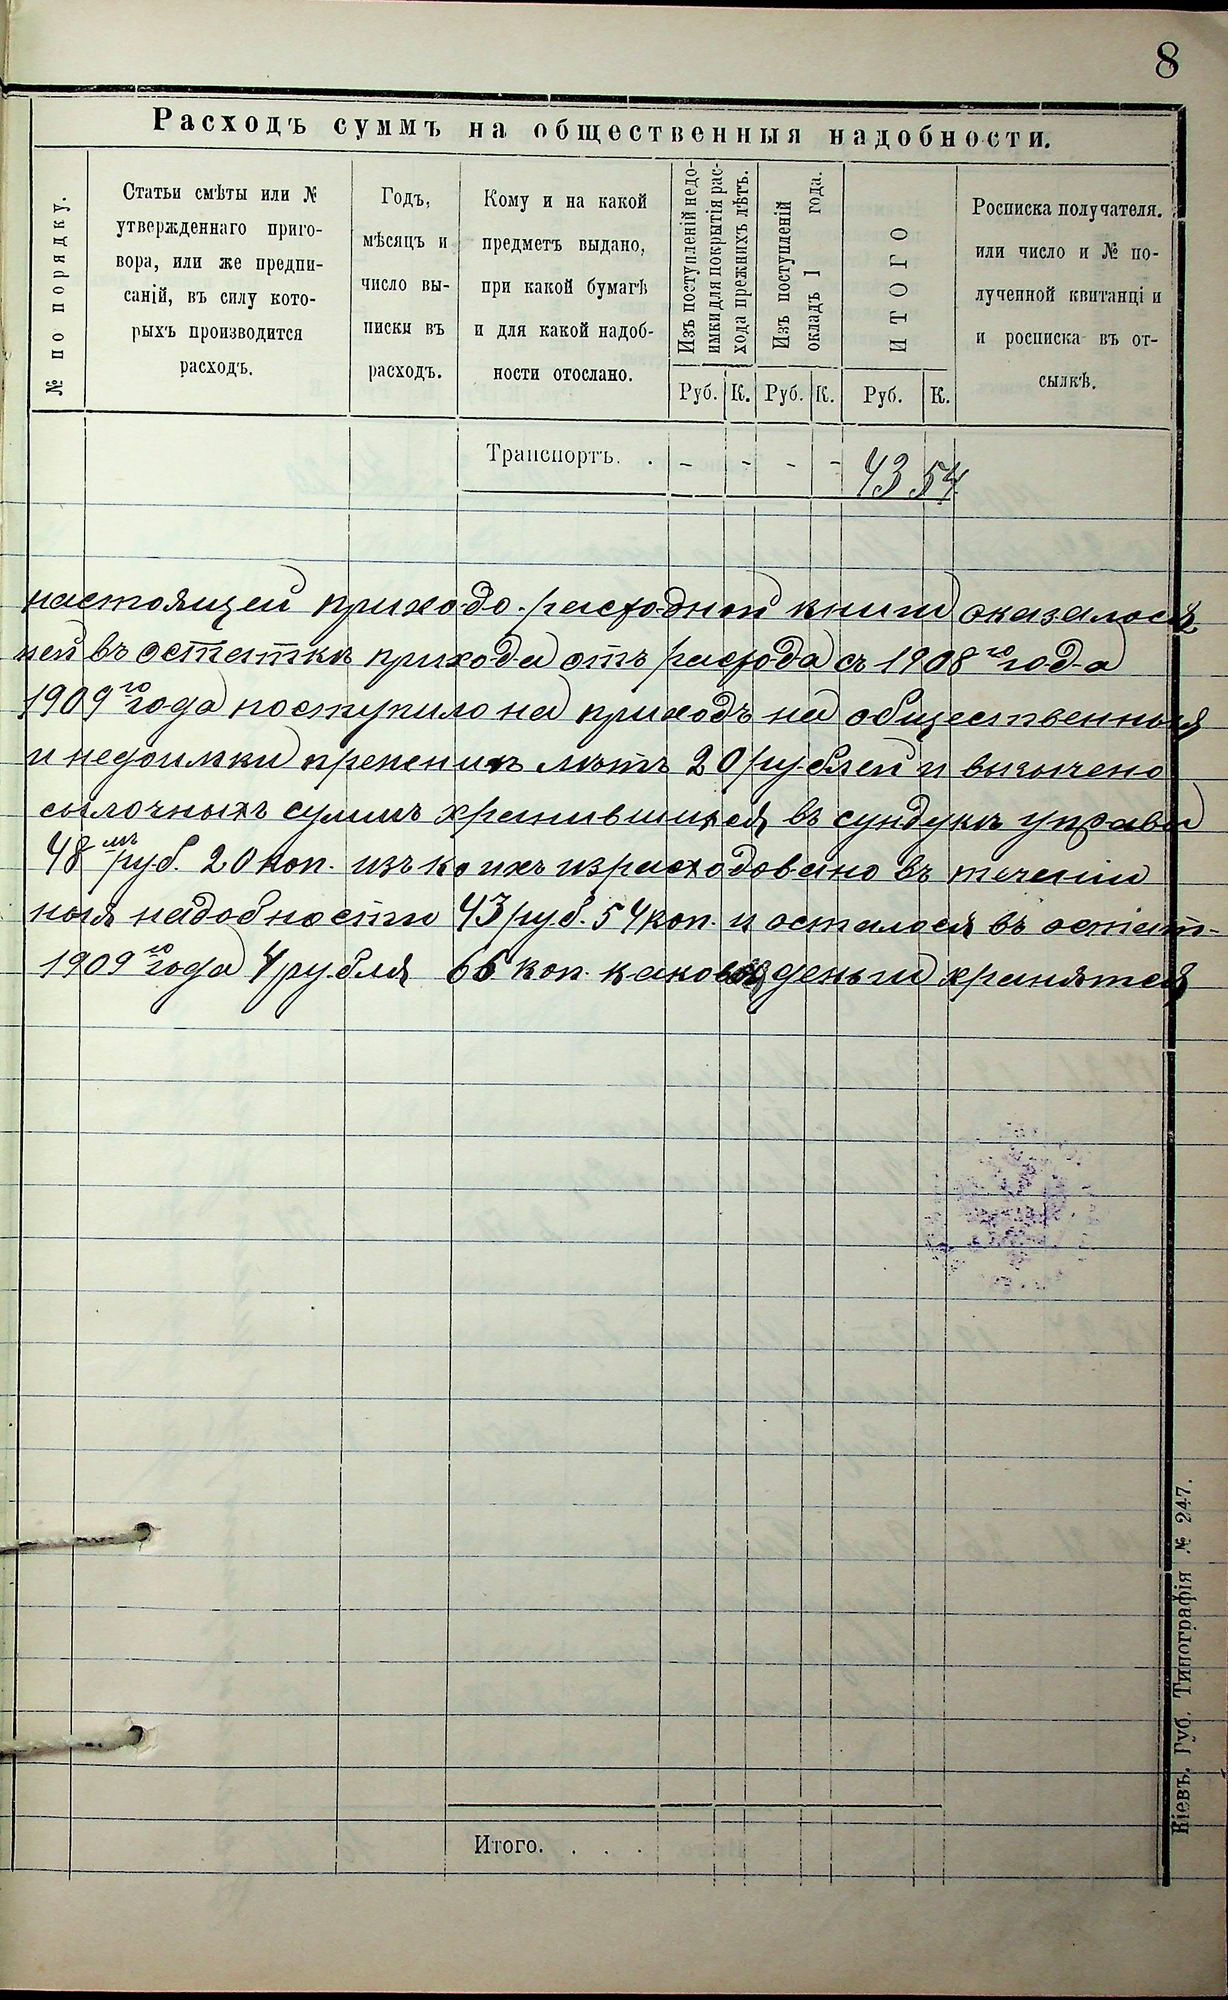 8
Расходъ суммъ на общественныя надобности.
№ по порядку.
Статьи смѣты или №
утвержденнаго приго-
вора, или же предпи-
саній, въ силу кото-
рыхъ производится
расходъ.
Годъ,
мѣсяцъ и
число вы-
писки въ
расходъ.
Кому и на какой
предметъ выдано,
при какой бумагѣ
и для какой надоб-
ности отослано.
Изъ поступленій недо-
имки для покрытія рас-
хода прежнихъ лѣтъ.
Изъ поступленій
окладъ 1 года.
ИТОГО
Росписка получателя.
или число и № по-
лученной квитанці и
и росписка въ от-
сылкѣ.
Руб. К. Руб. К. Руб. К.
Транспортъ. . - - - - 43 54
настоящей приходо-расходной книги оказалось
ней въ остаткѣ прихода отъ расхода съ 1908го года
1909го года поступило на приходъ на общественныя
и недоимки прежнихъ лѣтъ 20 рублей и
сылочныхъ суммъ хранившихся въ сундукѣ управы
48мъ руб. 20 коп. изъ коихъ израсходовано въ теченіи
ныя надобности 43 руб. 54 коп. и осталось въ остат-
1909го года 4 рубля 66 коп. каковыя деньги хранятся
Итого. . . .
Кіевъ. Губ. Типографія № 247.